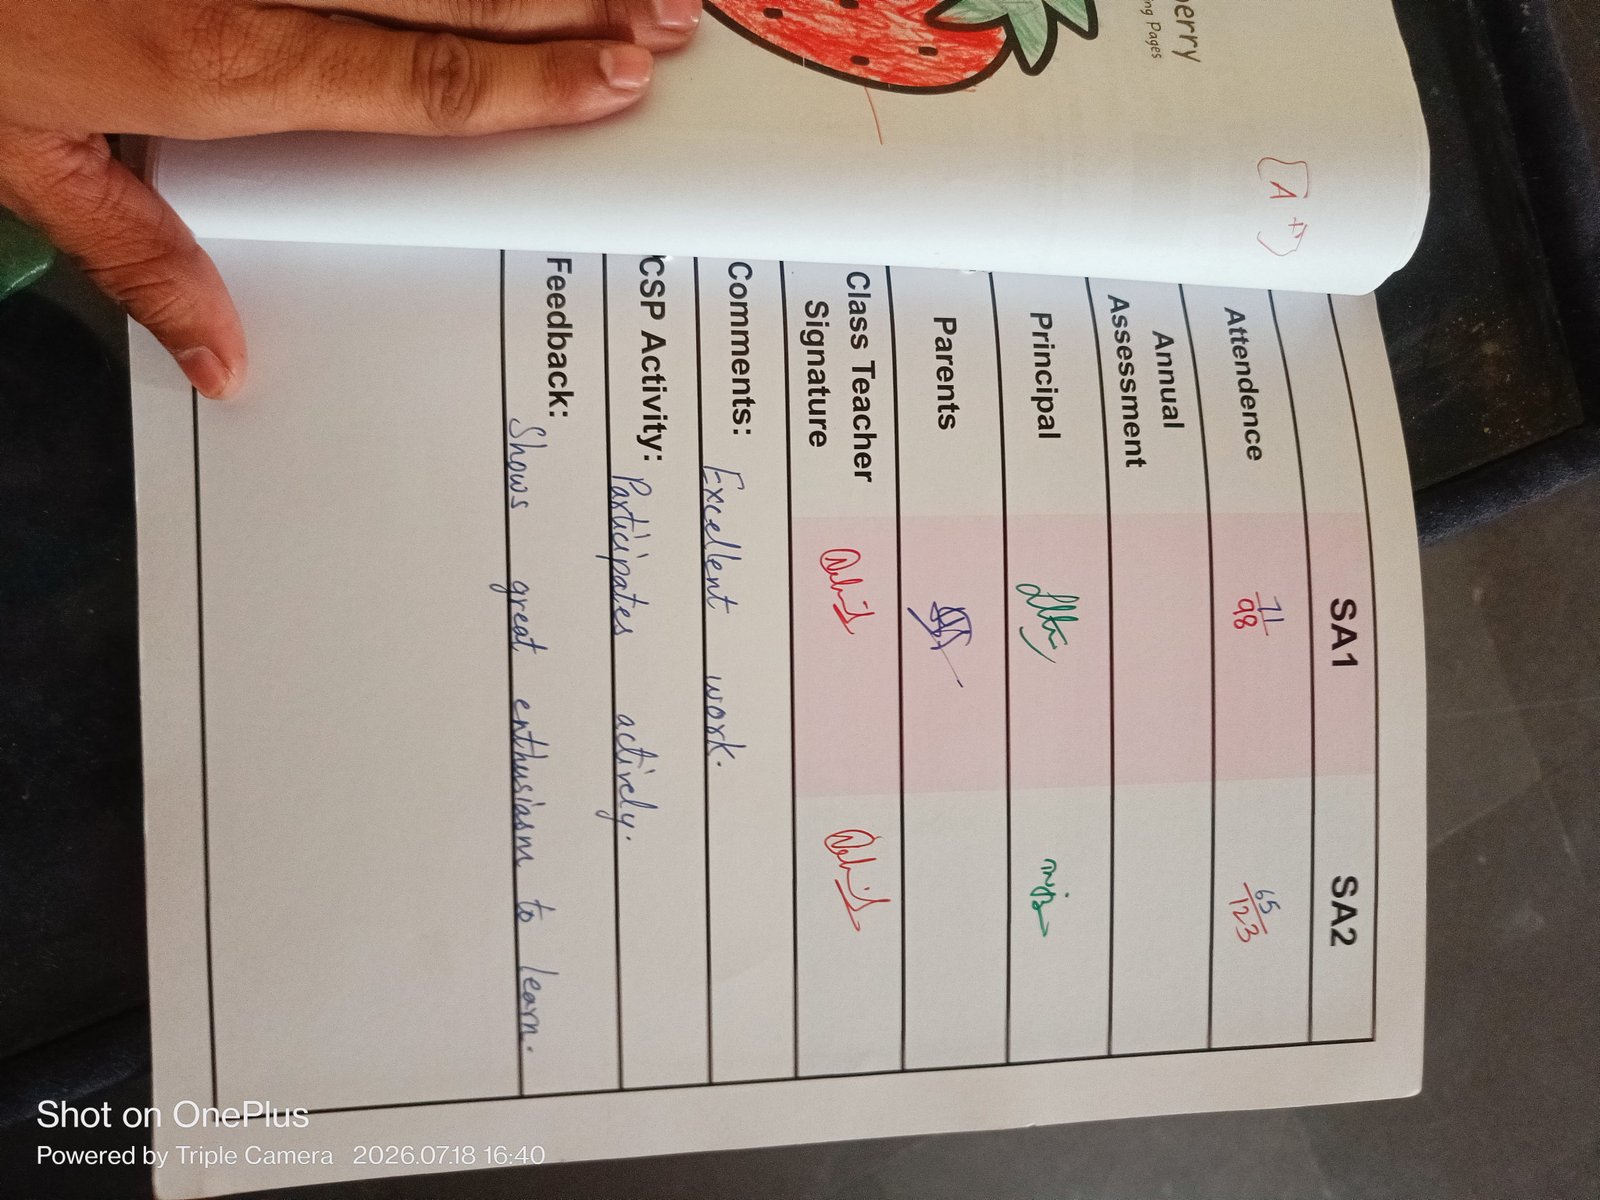 berry
ng Pages
A+
SA1 SA2
Attendence 71/98 65/123
Annual
Assessment
Principal
Parents
Class Teacher
Signature
Comments: Excellent work.
CSP Activity: Participates actively.
Feedback: Shows great enthusiasm to learn.
Shot on OnePlus
Powered by Triple Camera 2026.07.18 16:40